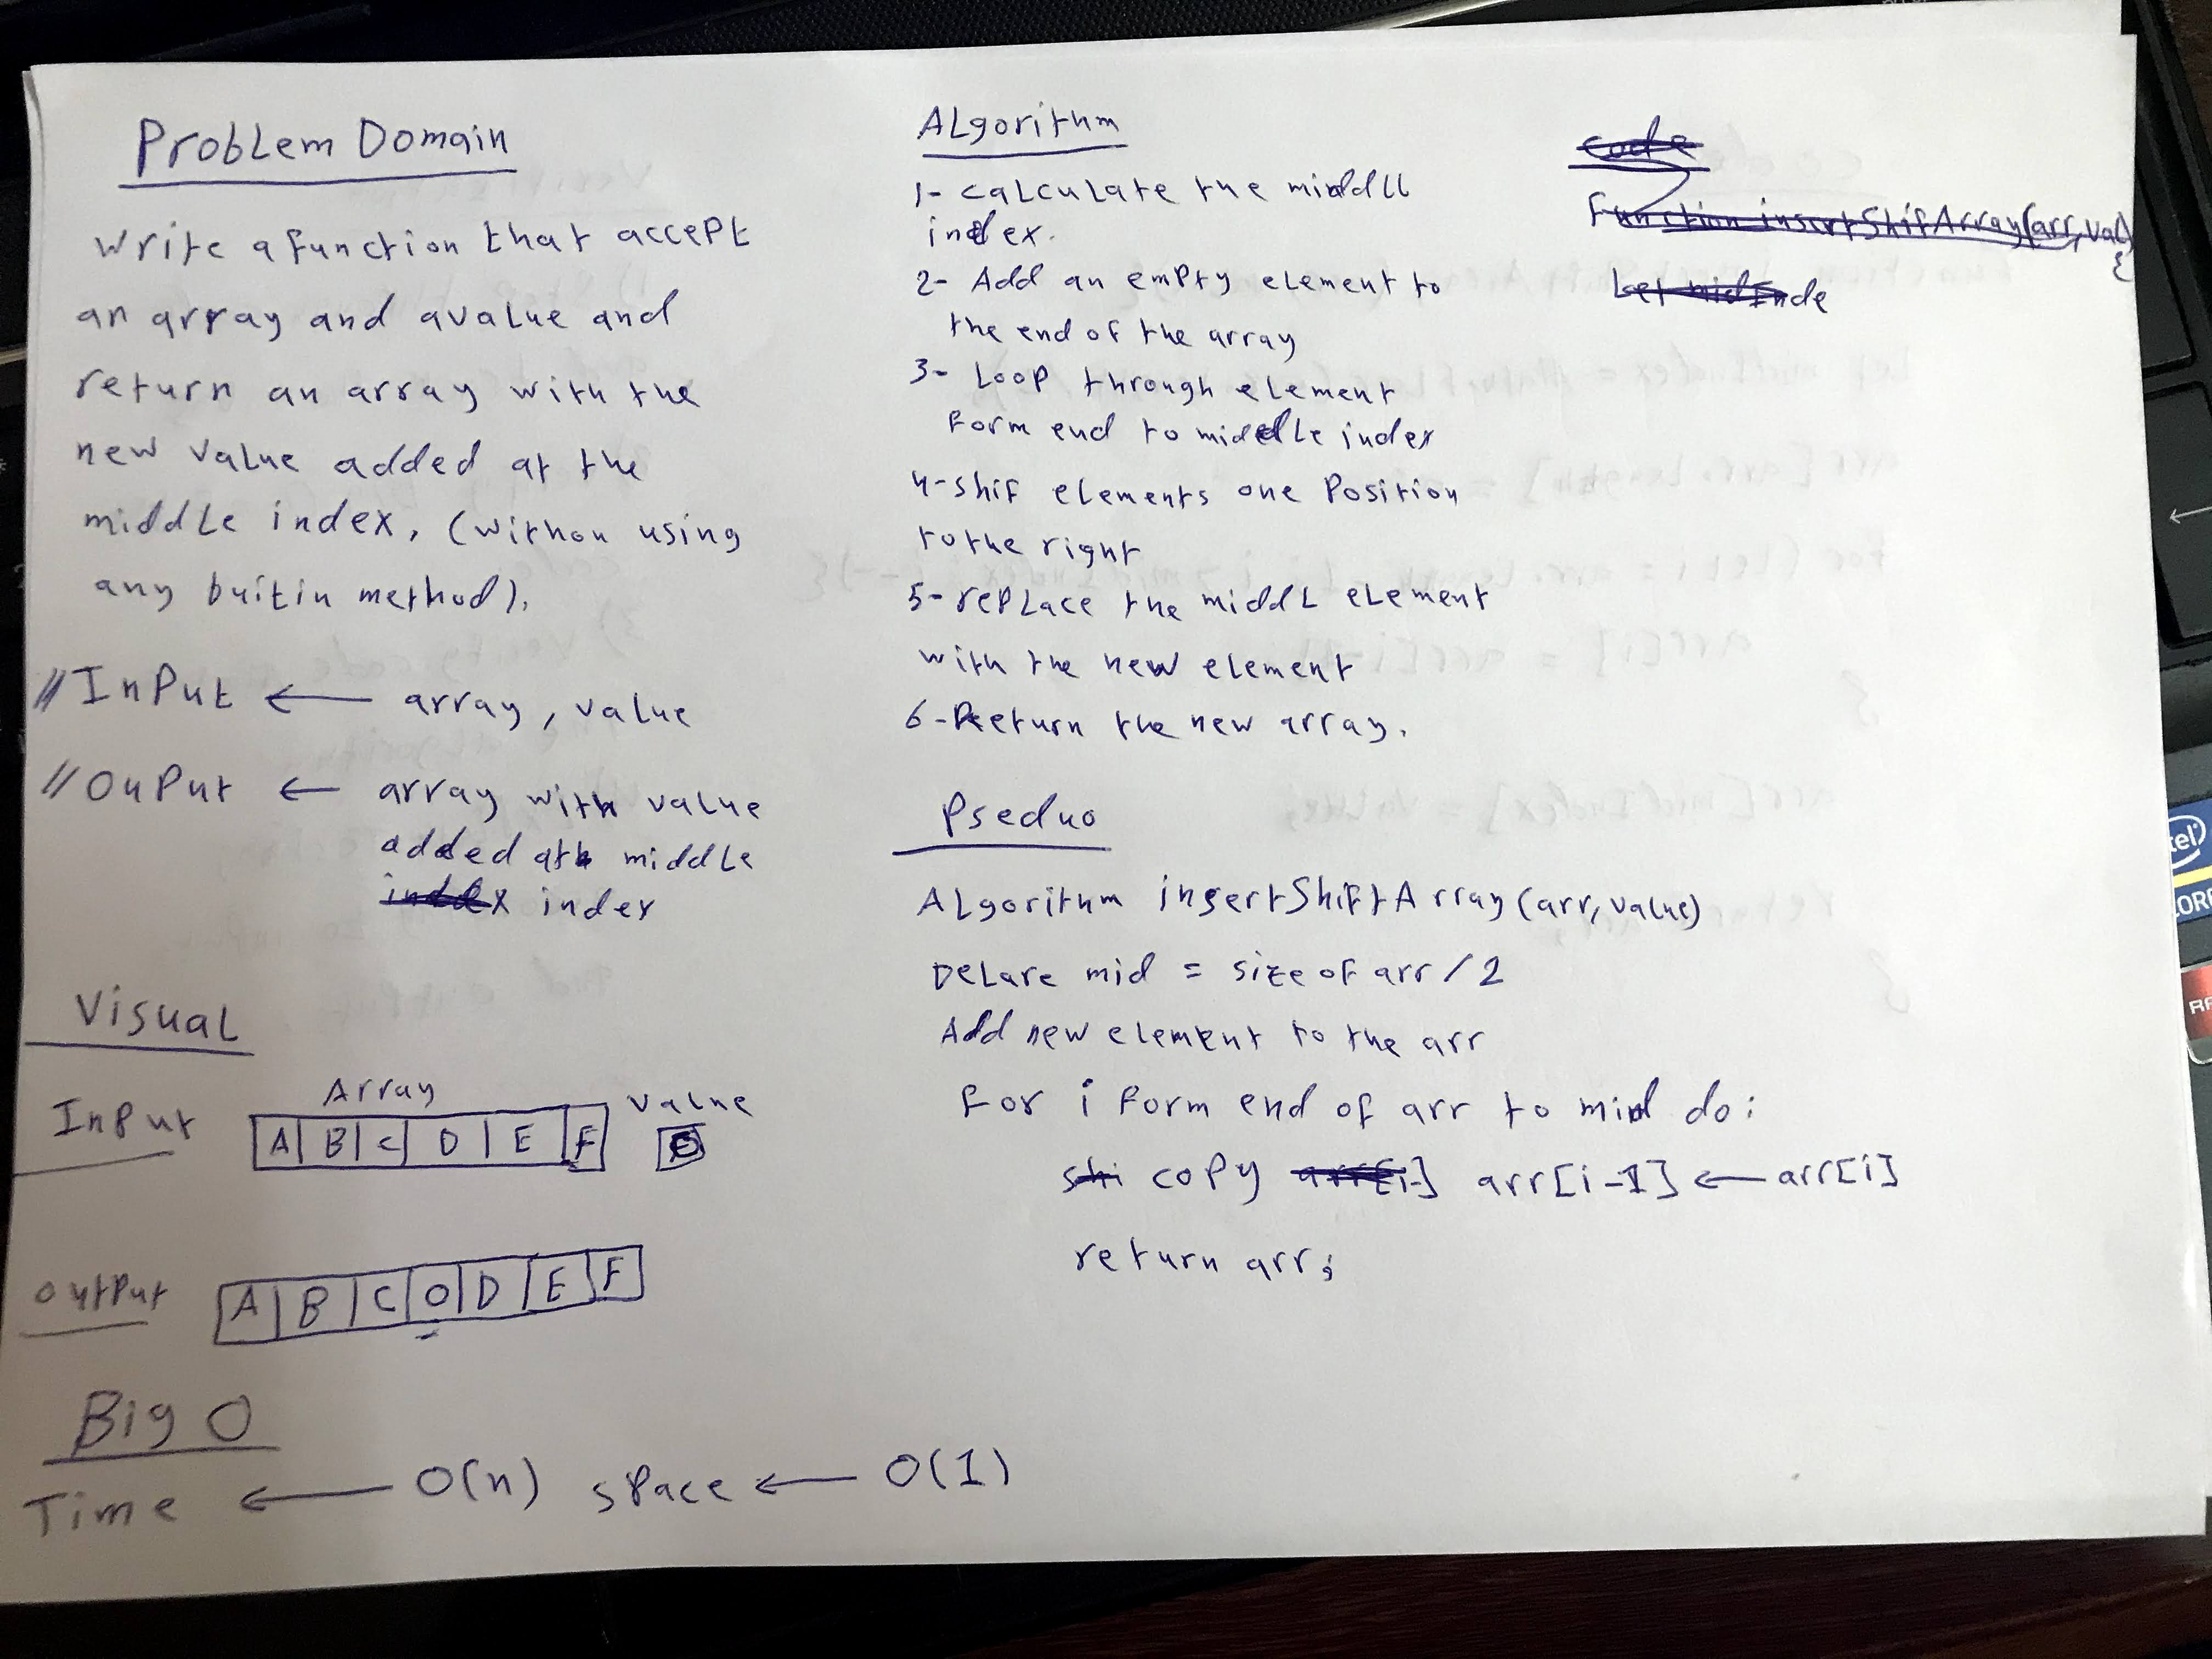 Problem Domain
Write a function that accept
an array and avalue and
return an array with the
new value added at the
middle index, (withou using
any buitin method).
//InPut ← array, value
//OnPut ← array with value
added at middle
index
Visual
Array value
InPut A B C D E F
outPut A B C O D E F
Big O
Time ← O(n) sPace ← O(1)
ALgorithm
1- calculate the middle
index.
2- Add an empty element to
the end of the array
3- Loop through element
form end to middle index
4- shif elements one Position
to the right
5- rePLace the middL eLement
with the new element
6- Return the new array.
Pseduo
ALgorithm insertShiftArray(arr,value)
Delare mid = size of arr/2
Add new element to the arr
For i form end of arr to mid do:
coPy arr[i-1] ← arr[i]
return arr;
code
function insertShifArray(arr,val){
Let midInde